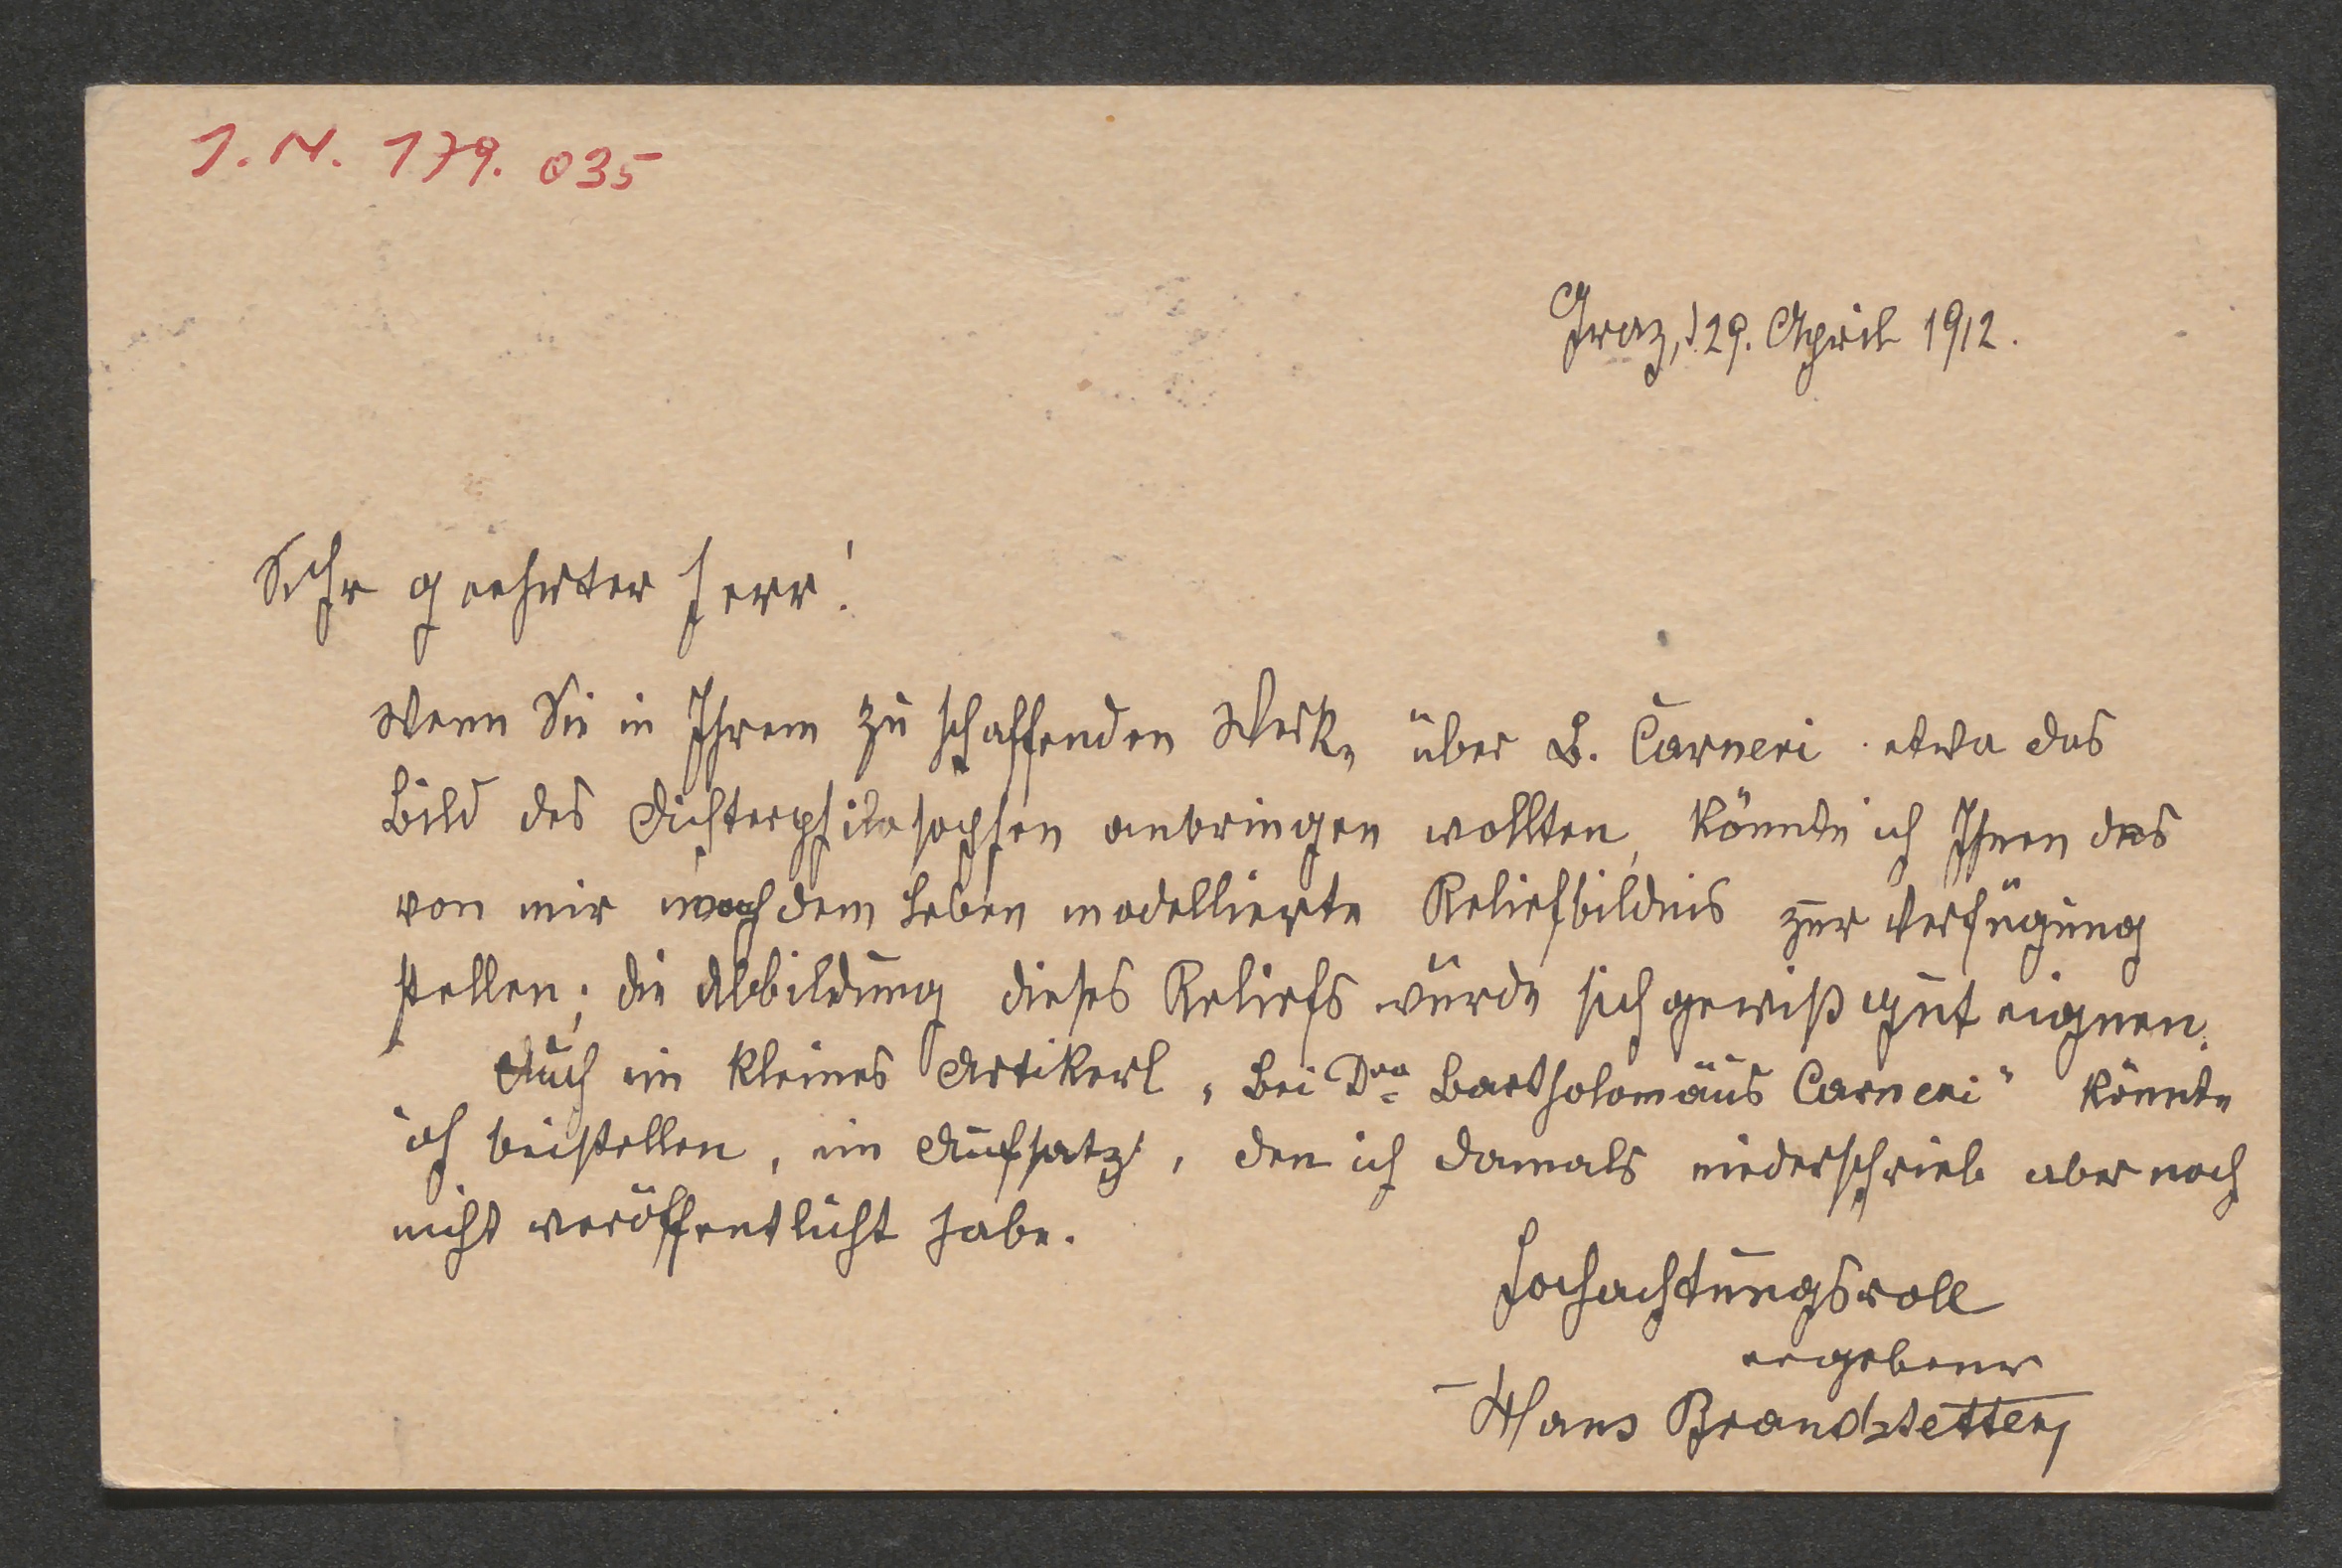 I.N. 179.035
Graz, d. 29. April 1912.
Sehr geehrter Herr!
Wenn Sie in Ihrem zu schaffenden Werke über B. Carneri etwa das
Bild des Dichterphilosophen anbringen wollten, könnte ich Ihnen das
von mir nach dem Leben modellierte Reliefbildnis zur Verfügung
stellen; die Abbildung dieses Reliefs würde sich gewiß gut eignen.
Auch ein kleines Artikerl „Bei Bartholomäus Carneri" könnte
ich beistellen, ein Aufsatz, den ich damals niederschrieb aber noch
nicht veröffentlicht habe.
Hochachtungsvoll
ergebener
Hans Brandstetter